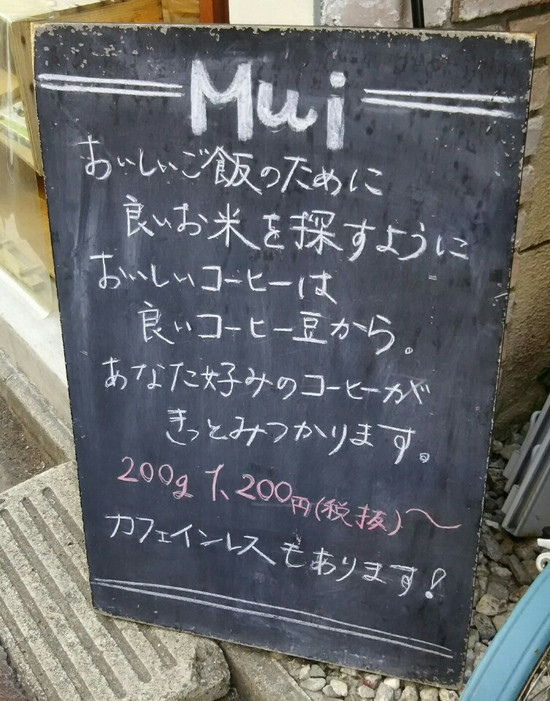 Mui
おいしいご飯のために
良いお米を探すように
おいしいコーヒーは
良いコーヒー豆から。
あなた好みのコーヒーが
きっとみつかります。
200g 1,200円(税抜)〜
カフェインレスもあります!